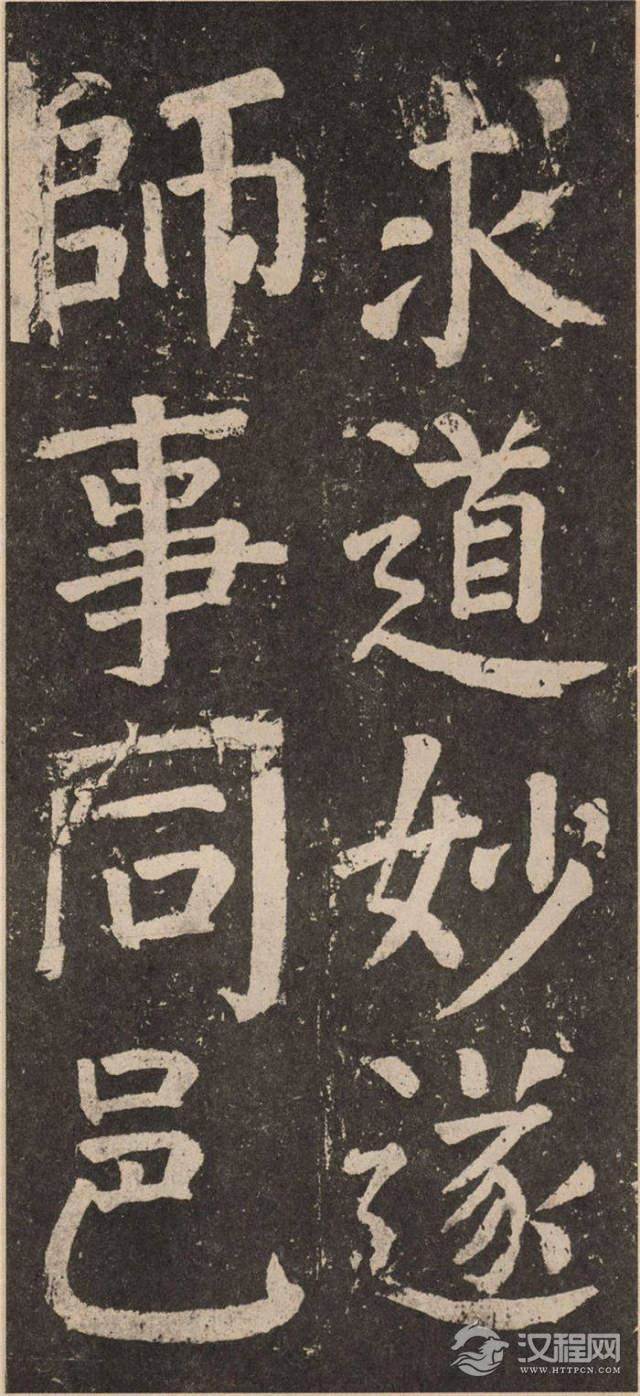 求道妙遂
師事同邑
汉程网
WWW.HTTPCN.COM